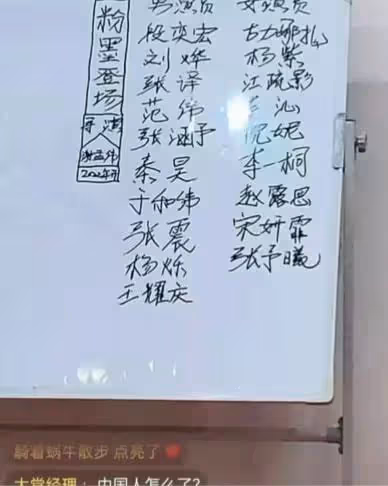 粉墨登场
导演
男演员
段奕宏
刘烨
张译
范伟
张涵予
秦昊
于和伟
张震
杨烁
王耀庆
女演员
古力娜扎
杨紫
江疏影
沁
倪妮
李一桐
赵露思
宋妍霏
张予曦
躺着蜗牛散步 点亮了
大堂经理：中国人怎么了？